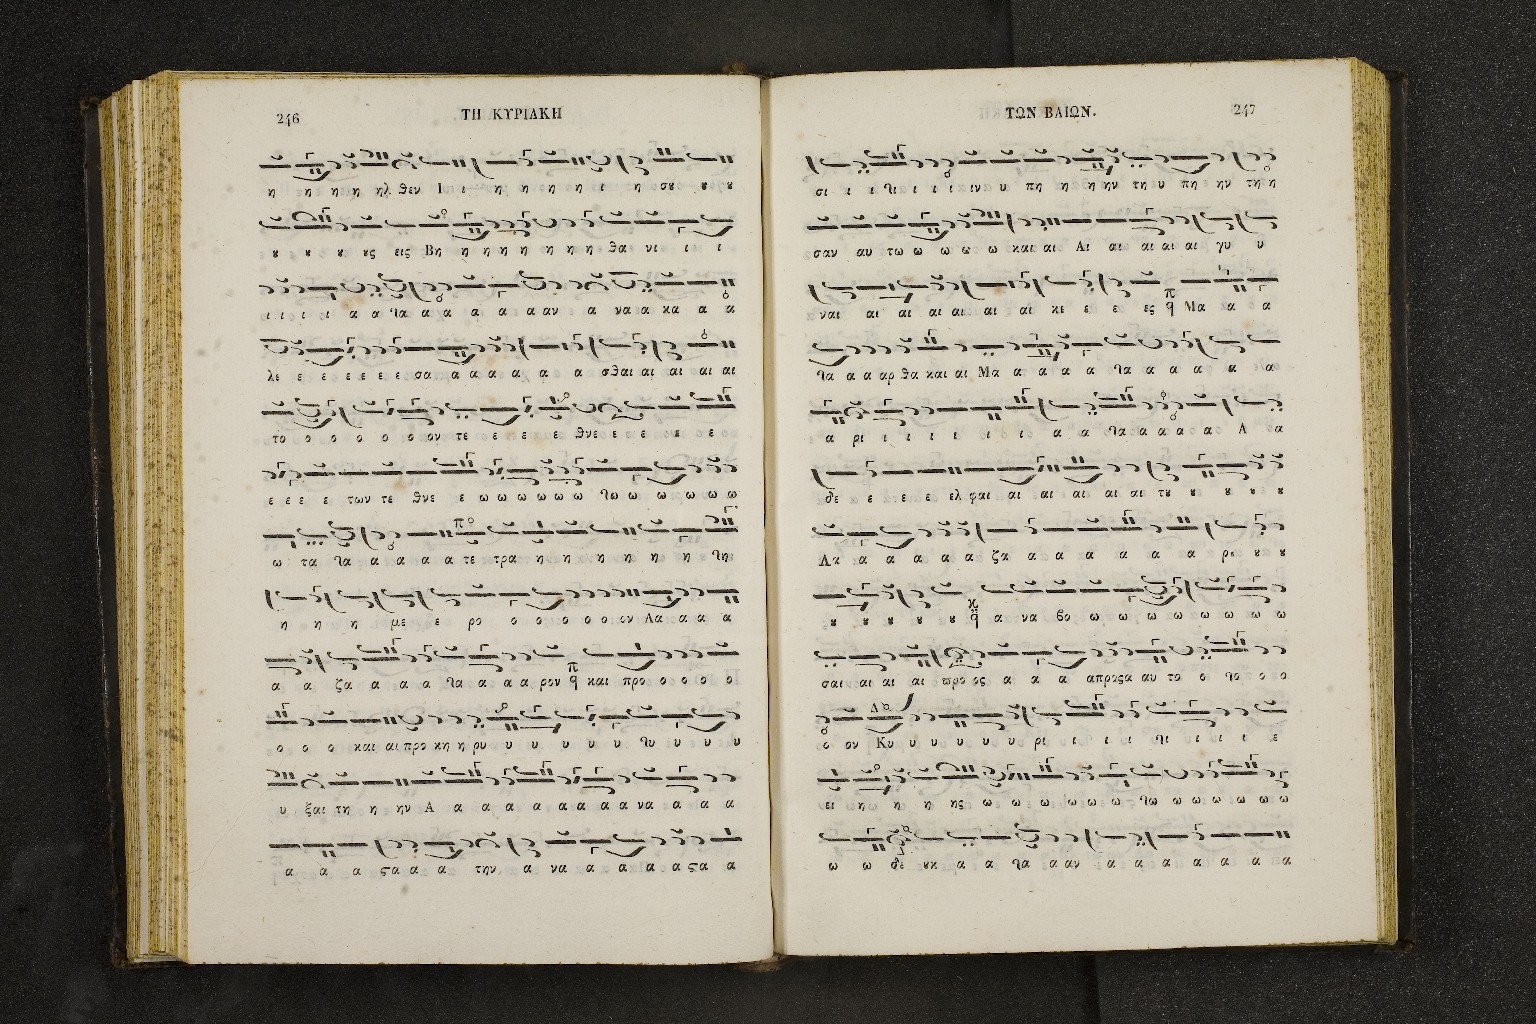 246
ΤΗ ΚΥΡΙΑΚΗ
η η η η ηλ θεν Ι ι η η η η ι η σȣ ȣ ȣ
ȣ ȣ ȣ ȣς εις Βη η η η η η η η θα νι ι ι
ι ι ι ι α α α α α α α α αν α να α κα α α
λε ε ε ε ε ε ε σα α α α α α α σθαι αι αι αι αι
το ο ο ο ο ο ον τε ε ε ε ε θνε ε ε ε ε
ε ε ε ε των τε θνε ε ω ω ω ω ω ω ω ω ω ω ω
ω τα α α α α α τε τρα η η η η η η
η η η με ε ρο ο ο ο ο ο ον Λα α α α
α α ζα α α α α α α α ρον και προ ο ο ο ο
ο ο ο και αι προ κη η ρυ υ υ υ υ υ υ υ υ υ
υ ξαι τη η ην Α α α α α α α α α να α α α
α α α ςα α α την α να α α α α ςα α
ΤΩΝ ΒΑΙΩΝ.
247
σι ι ι ι ι ι ιν υ πη η η ην τη υ πη ην τη η
σαν αυ τω ω ω ω ω και αι Αι αι αι αι αι γυ υ
ναι αι αι αι αι αι αι κε ε ε ες Μα α α
α α αρ θα και αι Μα α α α α α α α α α
α ρι ι ι ι ι ι ι α α α α α α Α α
δε ε ε ε ελ φαι αι αι αι αι αι τȣ ȣ ȣ ȣ ȣ
Λα α α α α α ζα α α α α α α α ρȣ ȣ ȣ
ȣ ȣ ȣ ȣ ȣ α να βο ω ω ω ω ω ω ω ω
σαι αι αι αι προ ος α α α απροςα αυ το ο ο ο ο
ο ον Κυ υ υ υ υ υ ρι ι ι ι ι ι ι ι ε
ει η η η ης ω ω ω ω ω ω ω ω ω ω ω ω
ω ω δε ȣκ α α α α αν α α α α α α α